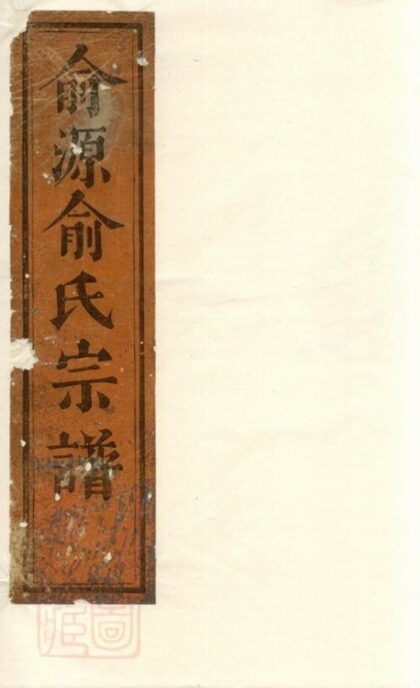 俞源俞氏宗譜